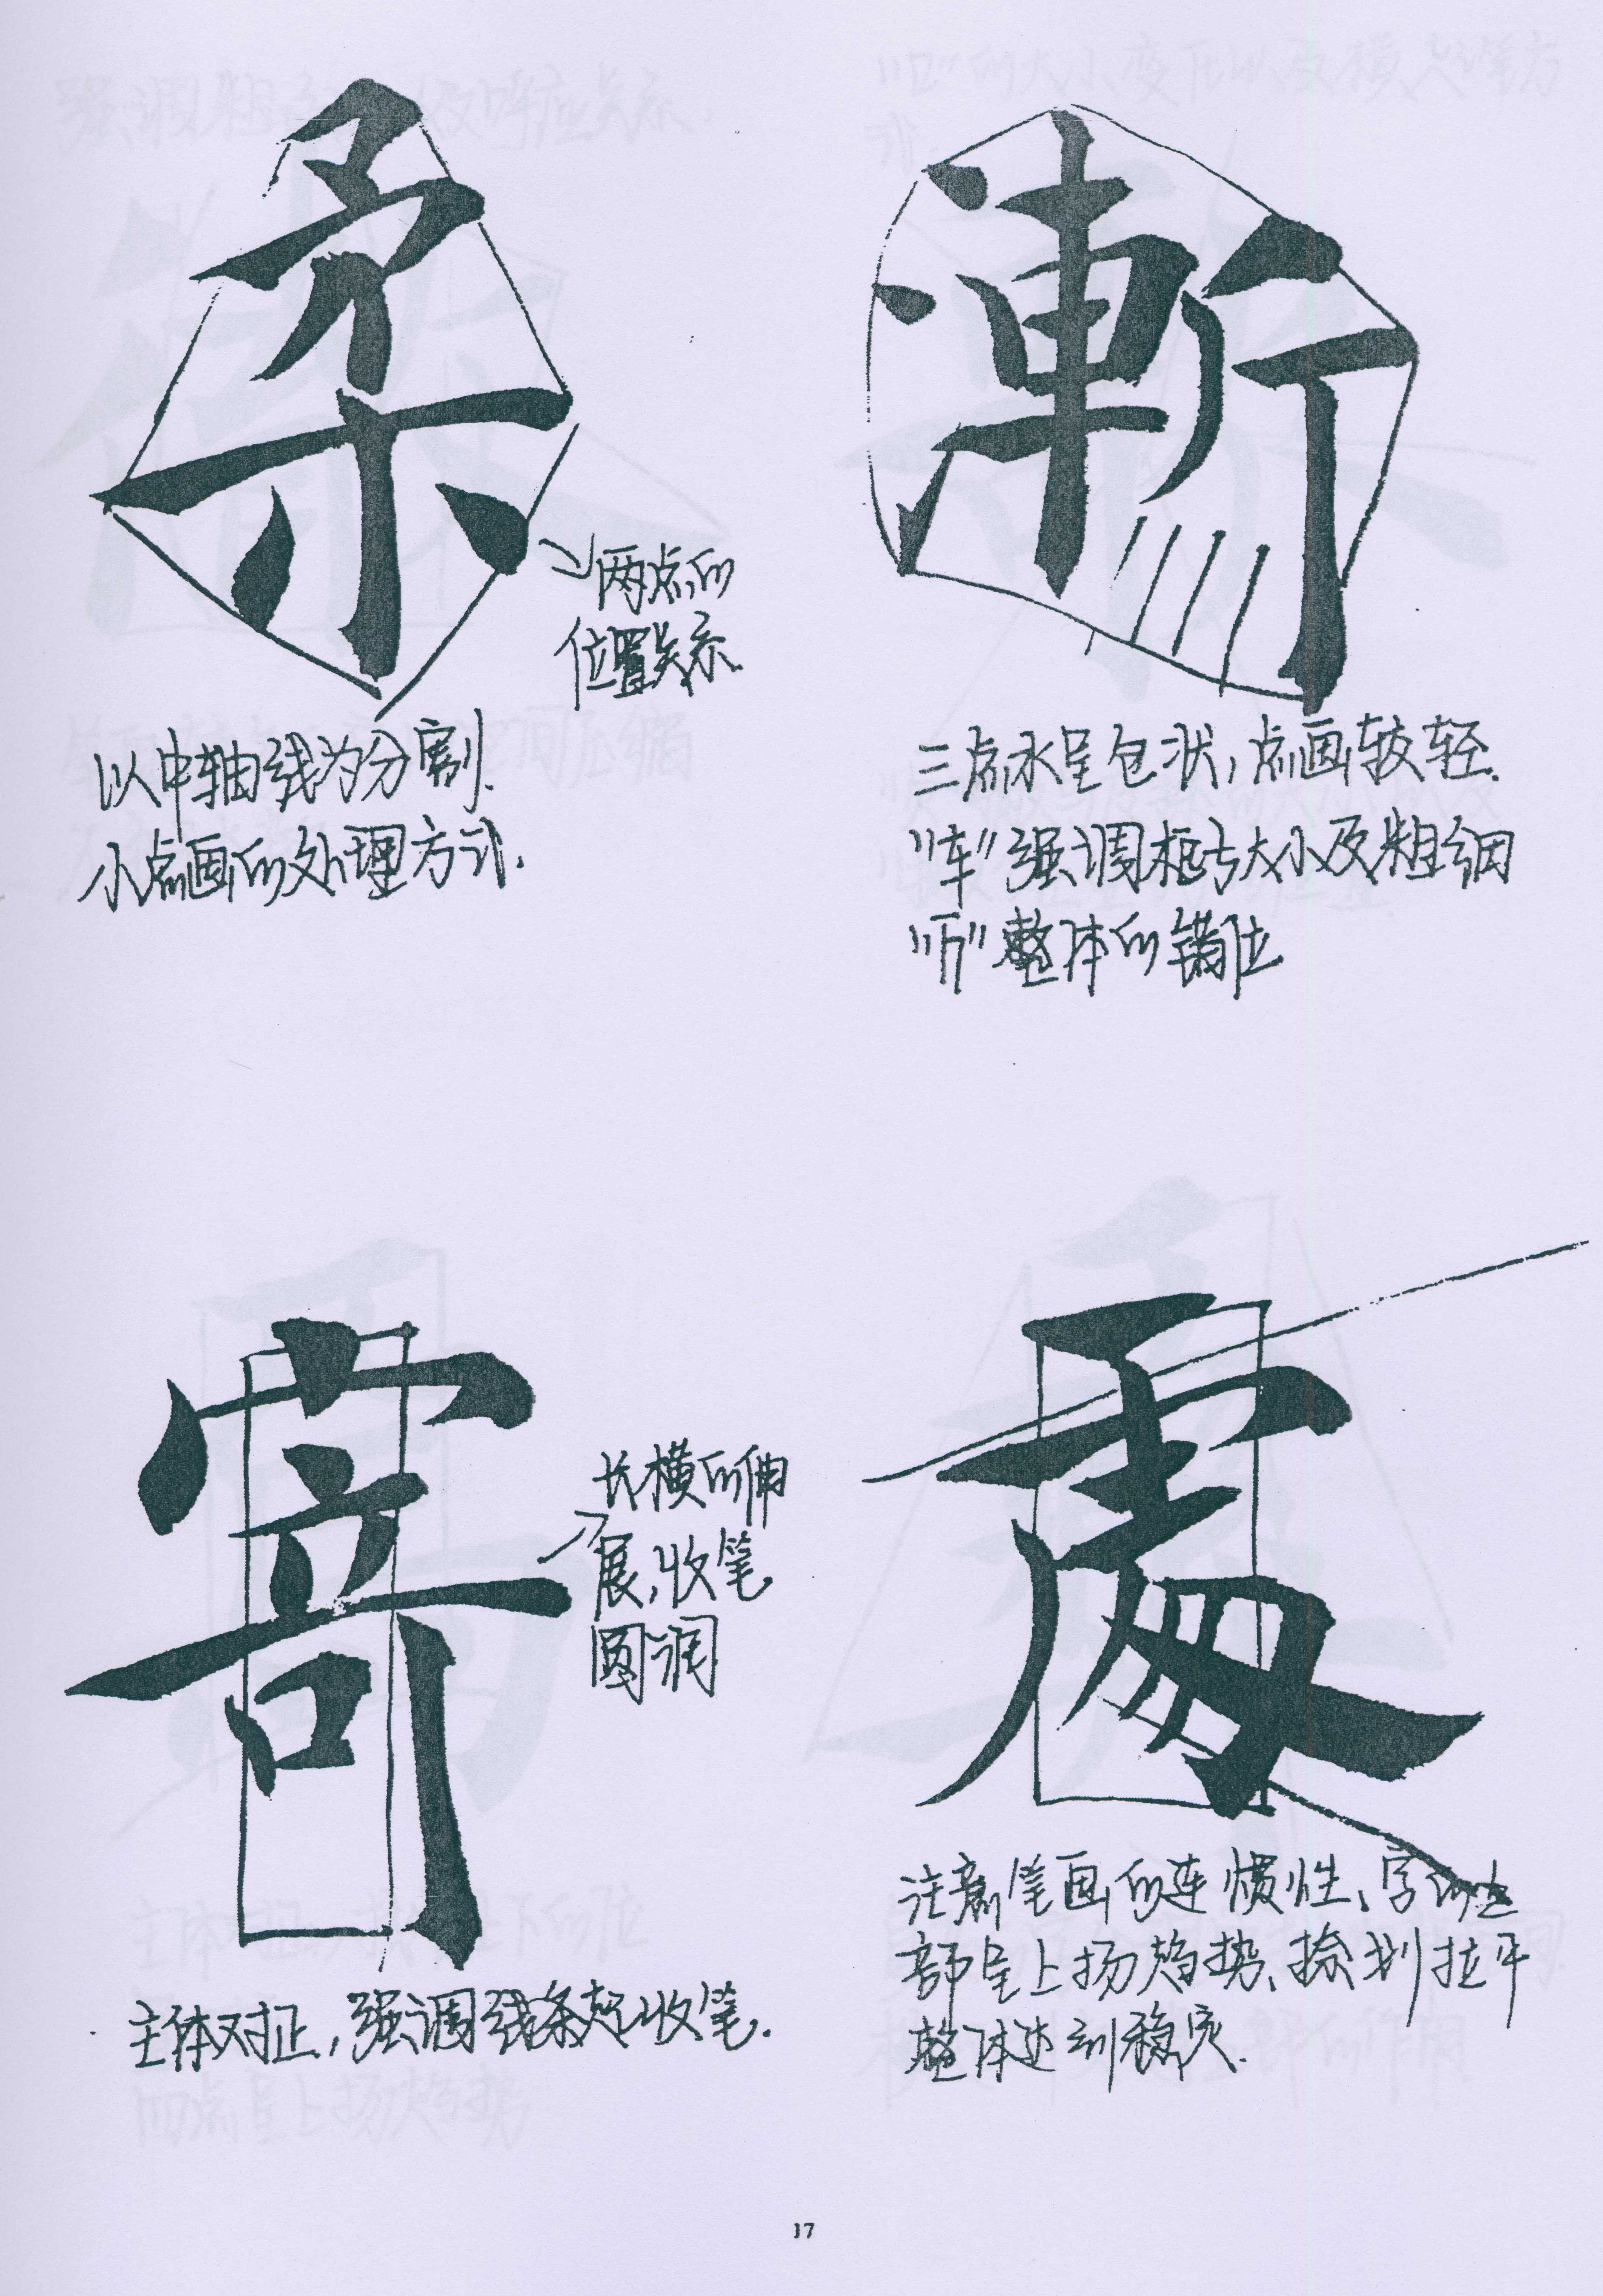 柔
两点的
位置关系.
以中轴线为分割.
小点画的处理方式.
漸
三点水呈包状,点画较轻.
"车"强调框与大小及粗细
"斤"整体的错位
寄
长横的伸
展,收笔
圆润
主体对正,强调线条起收笔.
處
注意笔画的连惯性、字的上
部呈上扬趋势、捺划拉平
整体达到稳定.
17